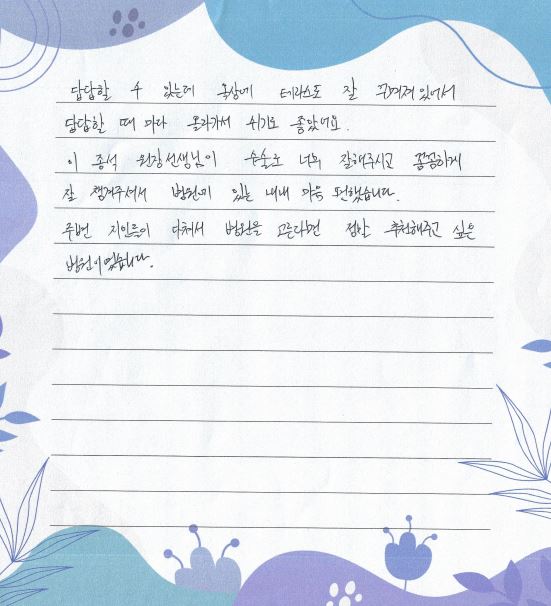 답답할 수 있는데 옥상에 테라스도 잘 꾸며져 있어서
답답할 때 마다 올라가서 쉬기도 좋았어요.
이 종석 원장선생님이 수술도 너무 잘해주시고 꼼꼼하게
잘 챙겨주셔서 병원에 있는 내내 마음 편했습니다.
주변 지인들이 다쳐서 병원을 고른다면 정말 추천해주고 싶은
병원이었습니다.